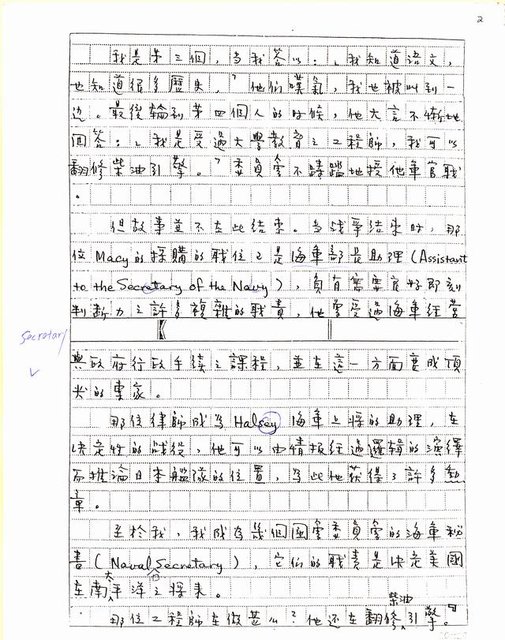 2
我是第三個，當我答以：「我知道語文，
也知道很多歷史，」他們嘆氣，我也被叫到一
邊。最後輪到第四個人的時候，他大言不慚地
回答：「我是受過大學教育之工程師，我可以
翻修柴油引擎。」委員會不躊躇地授他軍官職
。
但故事並不在此結束。當戰爭結束時，那
位Macy的採購的職位已是海軍部長助理（Assistant
to the Secretary of the Navy），負有需要良好即刻
判斷力之許多複雜的職責，他曾受過海軍經營
Secretary
與政府行政手續之課程，並在這一方面變成頂
尖的專家。
那位律師成為Halsey海軍上將的助理，在
決定性的戰役，他可以由情報經過邏輯的演繹
而推論日本艦隊的位置，為此他獲得了許多勳
章。
至於我，我成為幾個國會委員會的海軍秘
書（Naval Secretary），它們的職責是決定美國
在南太平洋之將來。
那位工程師在做甚麼？他還在翻修柴油引擎。」